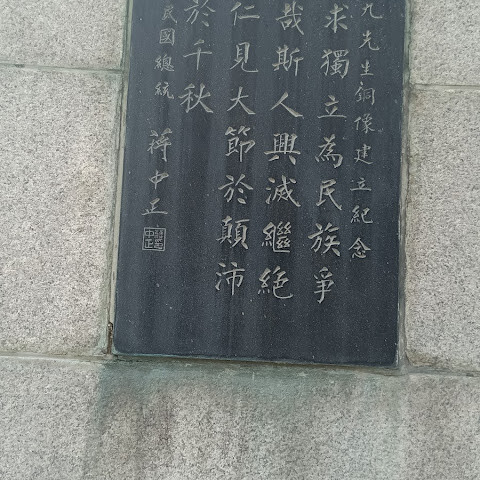 九先生銅像建立紀念
求獨立為民族爭
哉斯人興滅繼絕
仁見大節於顛沛
於千秋
民國總統 蔣中正